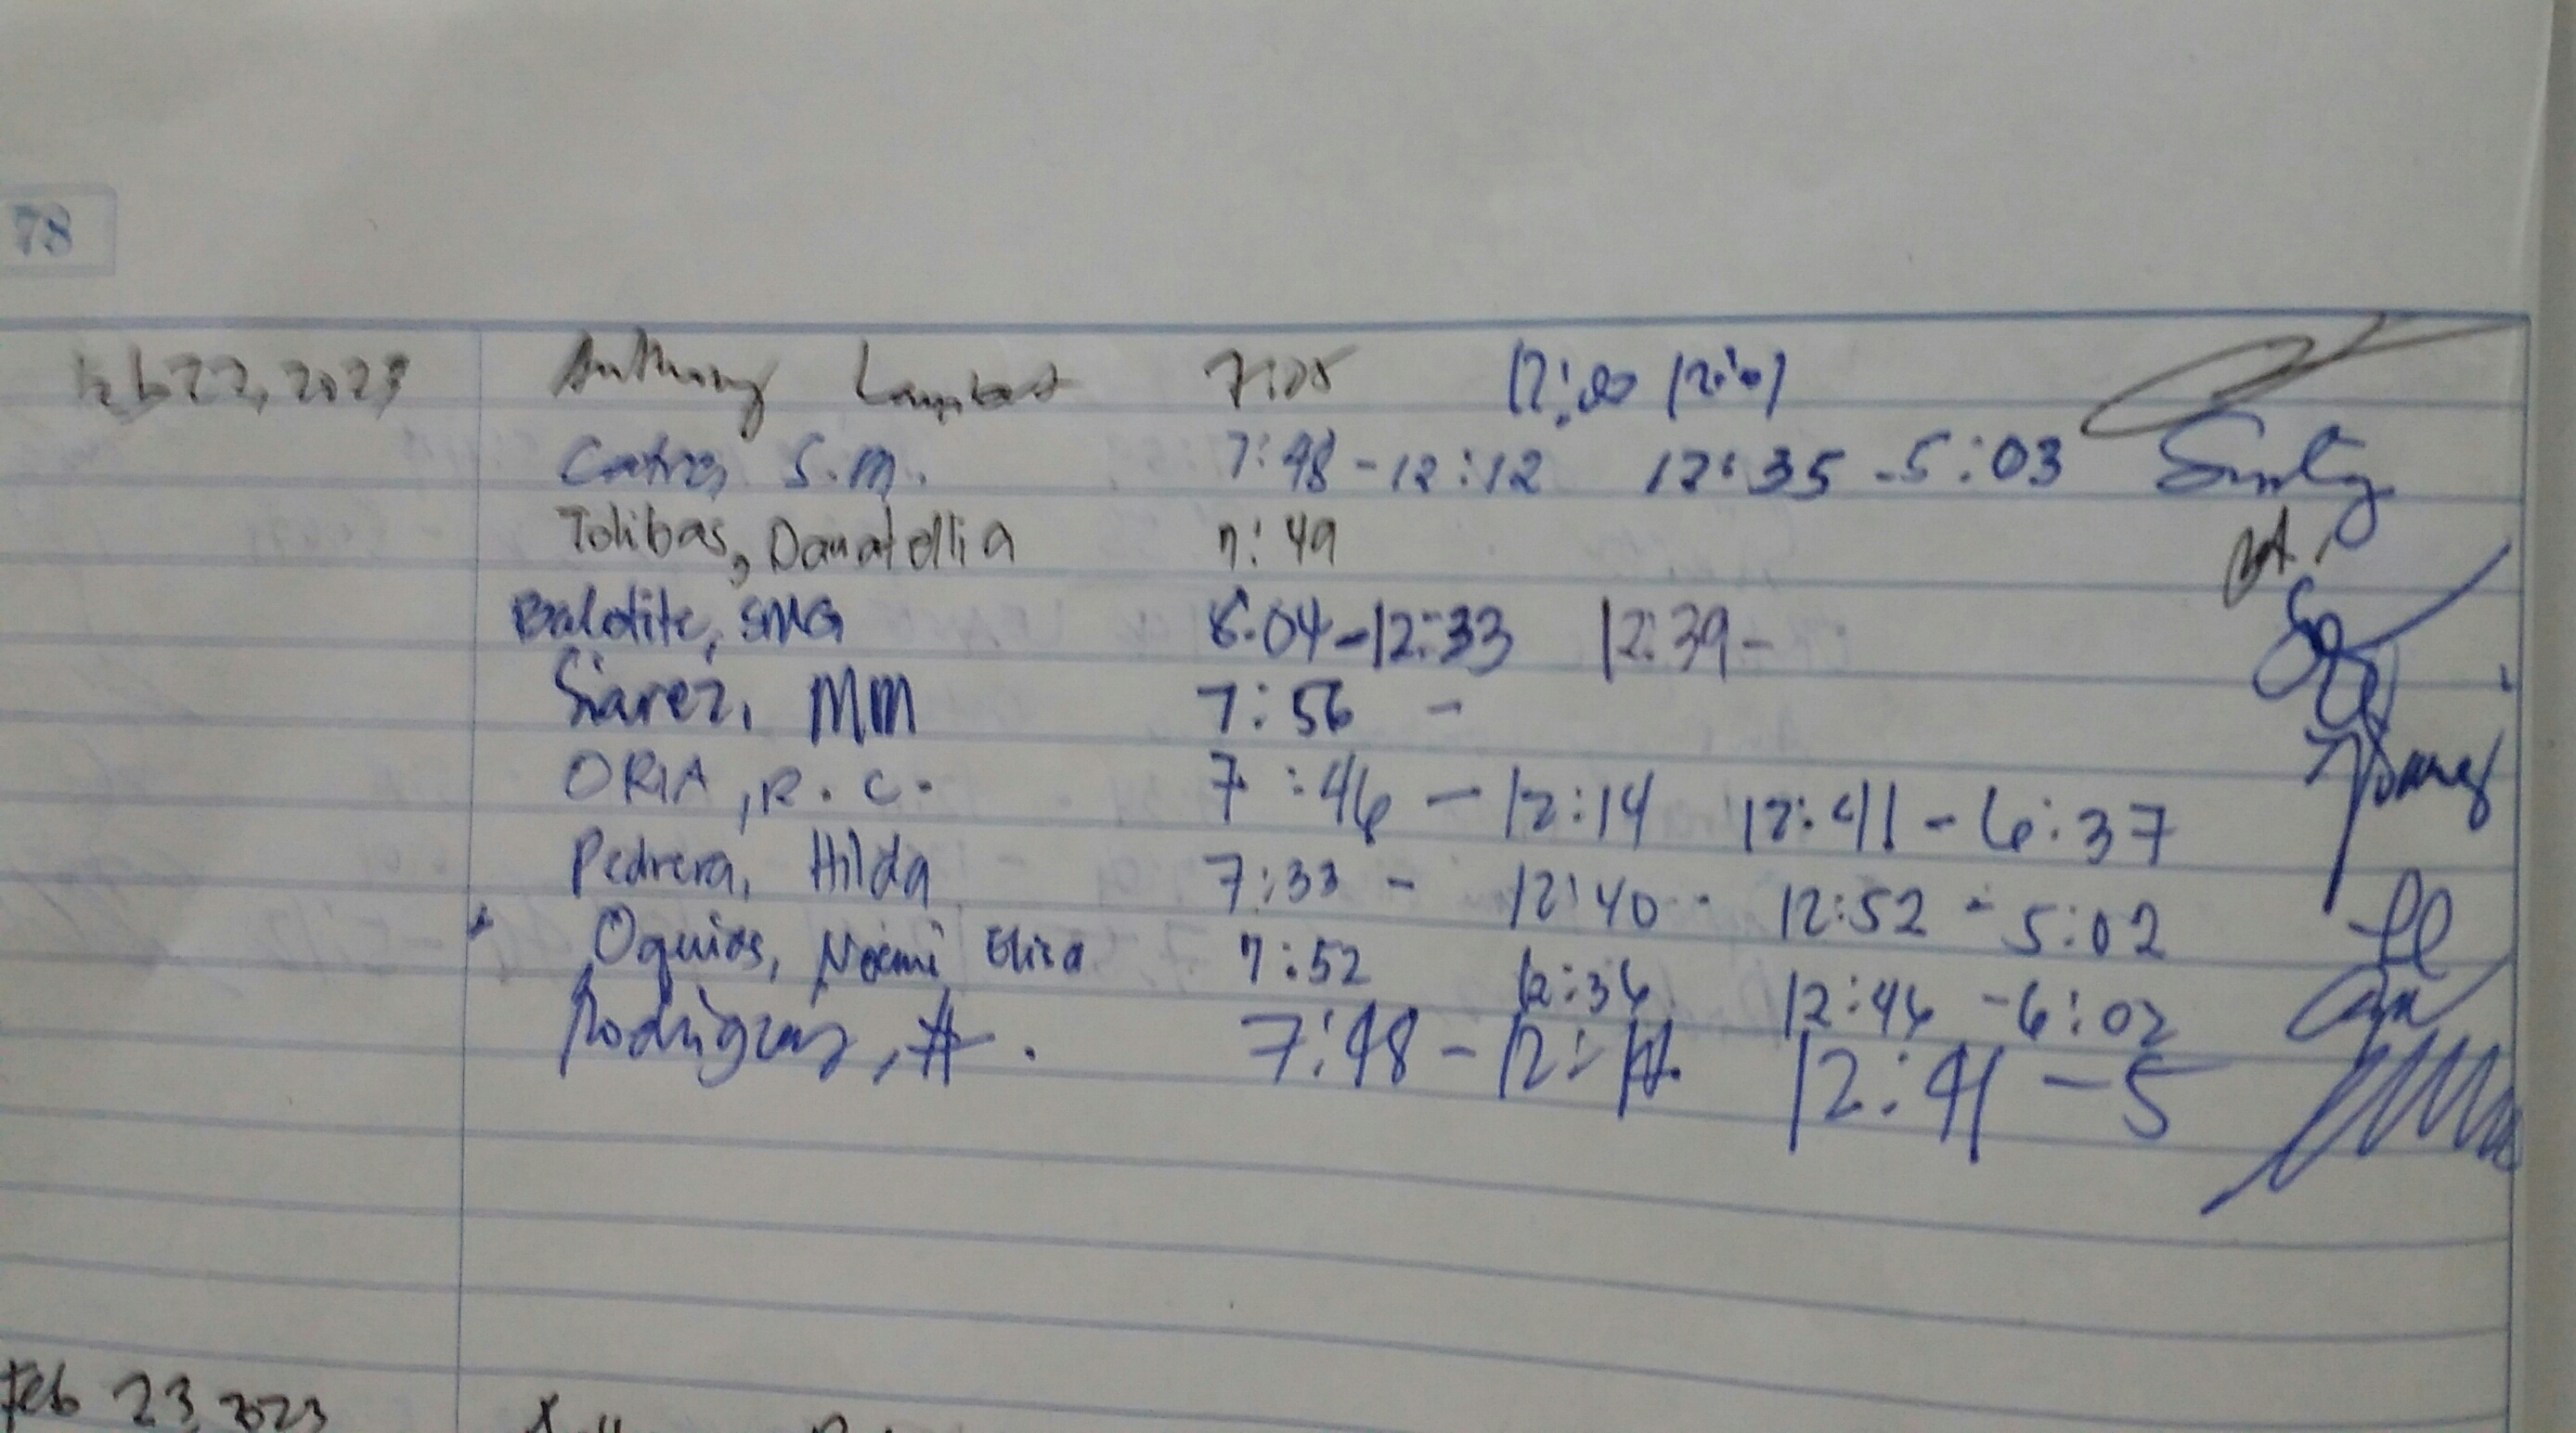 78
Feb 22, 2023 Anthony 12:00 12:01
S.M. 7:48 - 12:12 12:35 - 5:03
Tolibas, Danatellia 7:49
Balotite, SMG 8:04 - 12:33 12:39 -
Siarez, MM 7:56 -
ORIA, R. C. 7:46 - 12:14 12:41 - 6:37
Pedrera, Hilda 7:33 - 12:40 - 12:52 - 5:02
Oquias, Noemi Eliza 7:52 12:36 12:46 - 6:02
Rodriguez, A. 7:48 - 12: 12:41 - 5
Feb 23, 2023